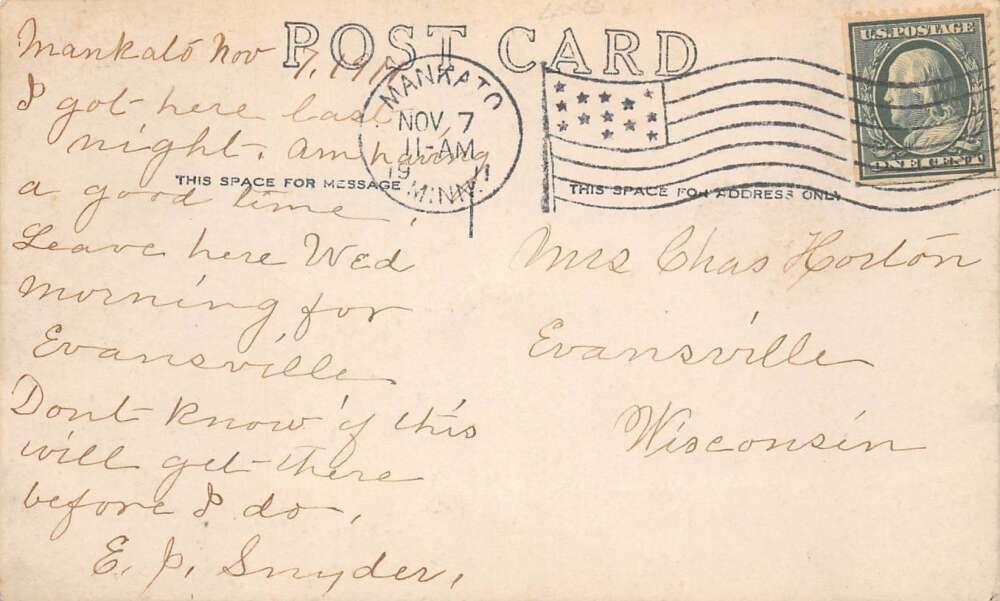 POST CARD
Mankato Nov 7, 1911
I got here last
night. Am having
a good time.
Leave here Wed
morning for
Evansville
Dont know if this
will get there
before I do.
E. P. Snyder.
THIS SPACE FOR MESSAGE
MANKATO
NOV 7
11-AM
1911
MINN.
THIS SPACE FOR ADDRESS ONLY
U.S. POSTAGE
ONE CENT
Mrs Chas Horton
Evansville
Wisconsin